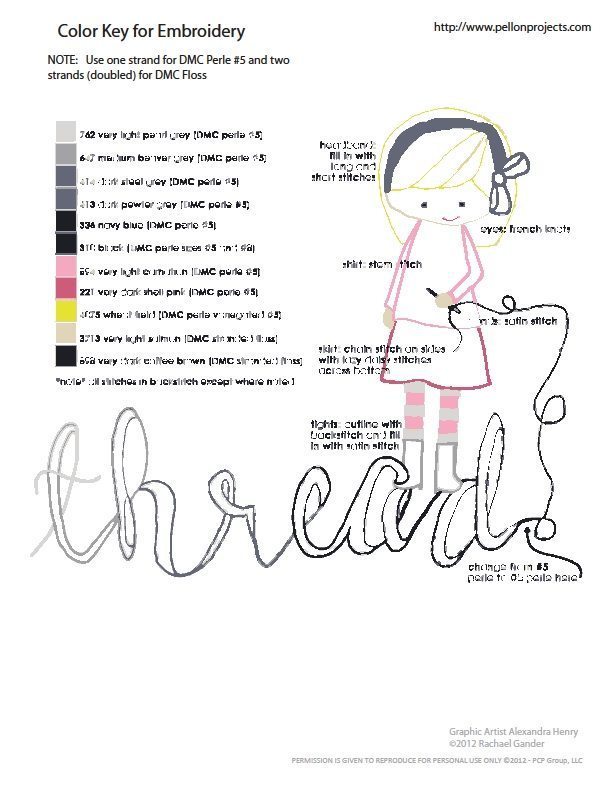 Color Key for Embroidery
http://www.pellonprojects.com
NOTE: Use one strand for DMC Perle #5 and two
strands (doubled) for DMC Floss
762 very light pearl grey (DMC perle #5)
647 medium beaver grey (DMC perle #5)
414 dark steel grey (DMC perle #5)
413 dark pewter grey (DMC perle #5)
336 navy blue (DMC perle #5)
310 black (DMC perle sizes #5 and #8)
894 very light carnation (DMC perle #5)
221 very dark shell pink (DMC perle #5)
4075 wheat field (DMC perle variegated #5)
3713 very light salmon (DMC stranded floss)
898 very dark coffee brown (DMC stranded floss)
*note* all stitches in backstitch except where noted
headband:
fill in with
long and
short stitches
eyes: french knots
shirt: stem stitch
satin stitch
skirt: chain stitch on sides
with lazy daisy stitches
across bottom
tights: outline with
backstitch and fill
in with satin stitch
thread
change from #5
perle to #8 perle here
Graphic Artist Alexandra Henry
©2012 Rachael Gander
PERMISSION IS GIVEN TO REPRODUCE FOR PERSONAL USE ONLY ©2012 - PCP Group, LLC